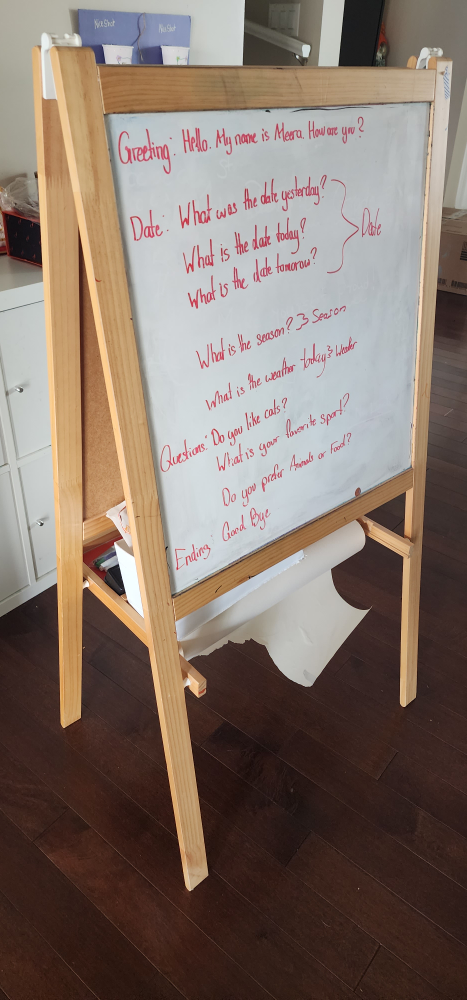 Greeting: Hello. My name is Meera. How are you?
Date: What was the date yesterday?
What is the date today?
What is the date tomorow?
Date
What is the season? } Season
What is the weather today? } Weader
Questions: Do you like cats?
What is your favorite sport?
Do you prefer Animals or Food?
Ending: Good Bye